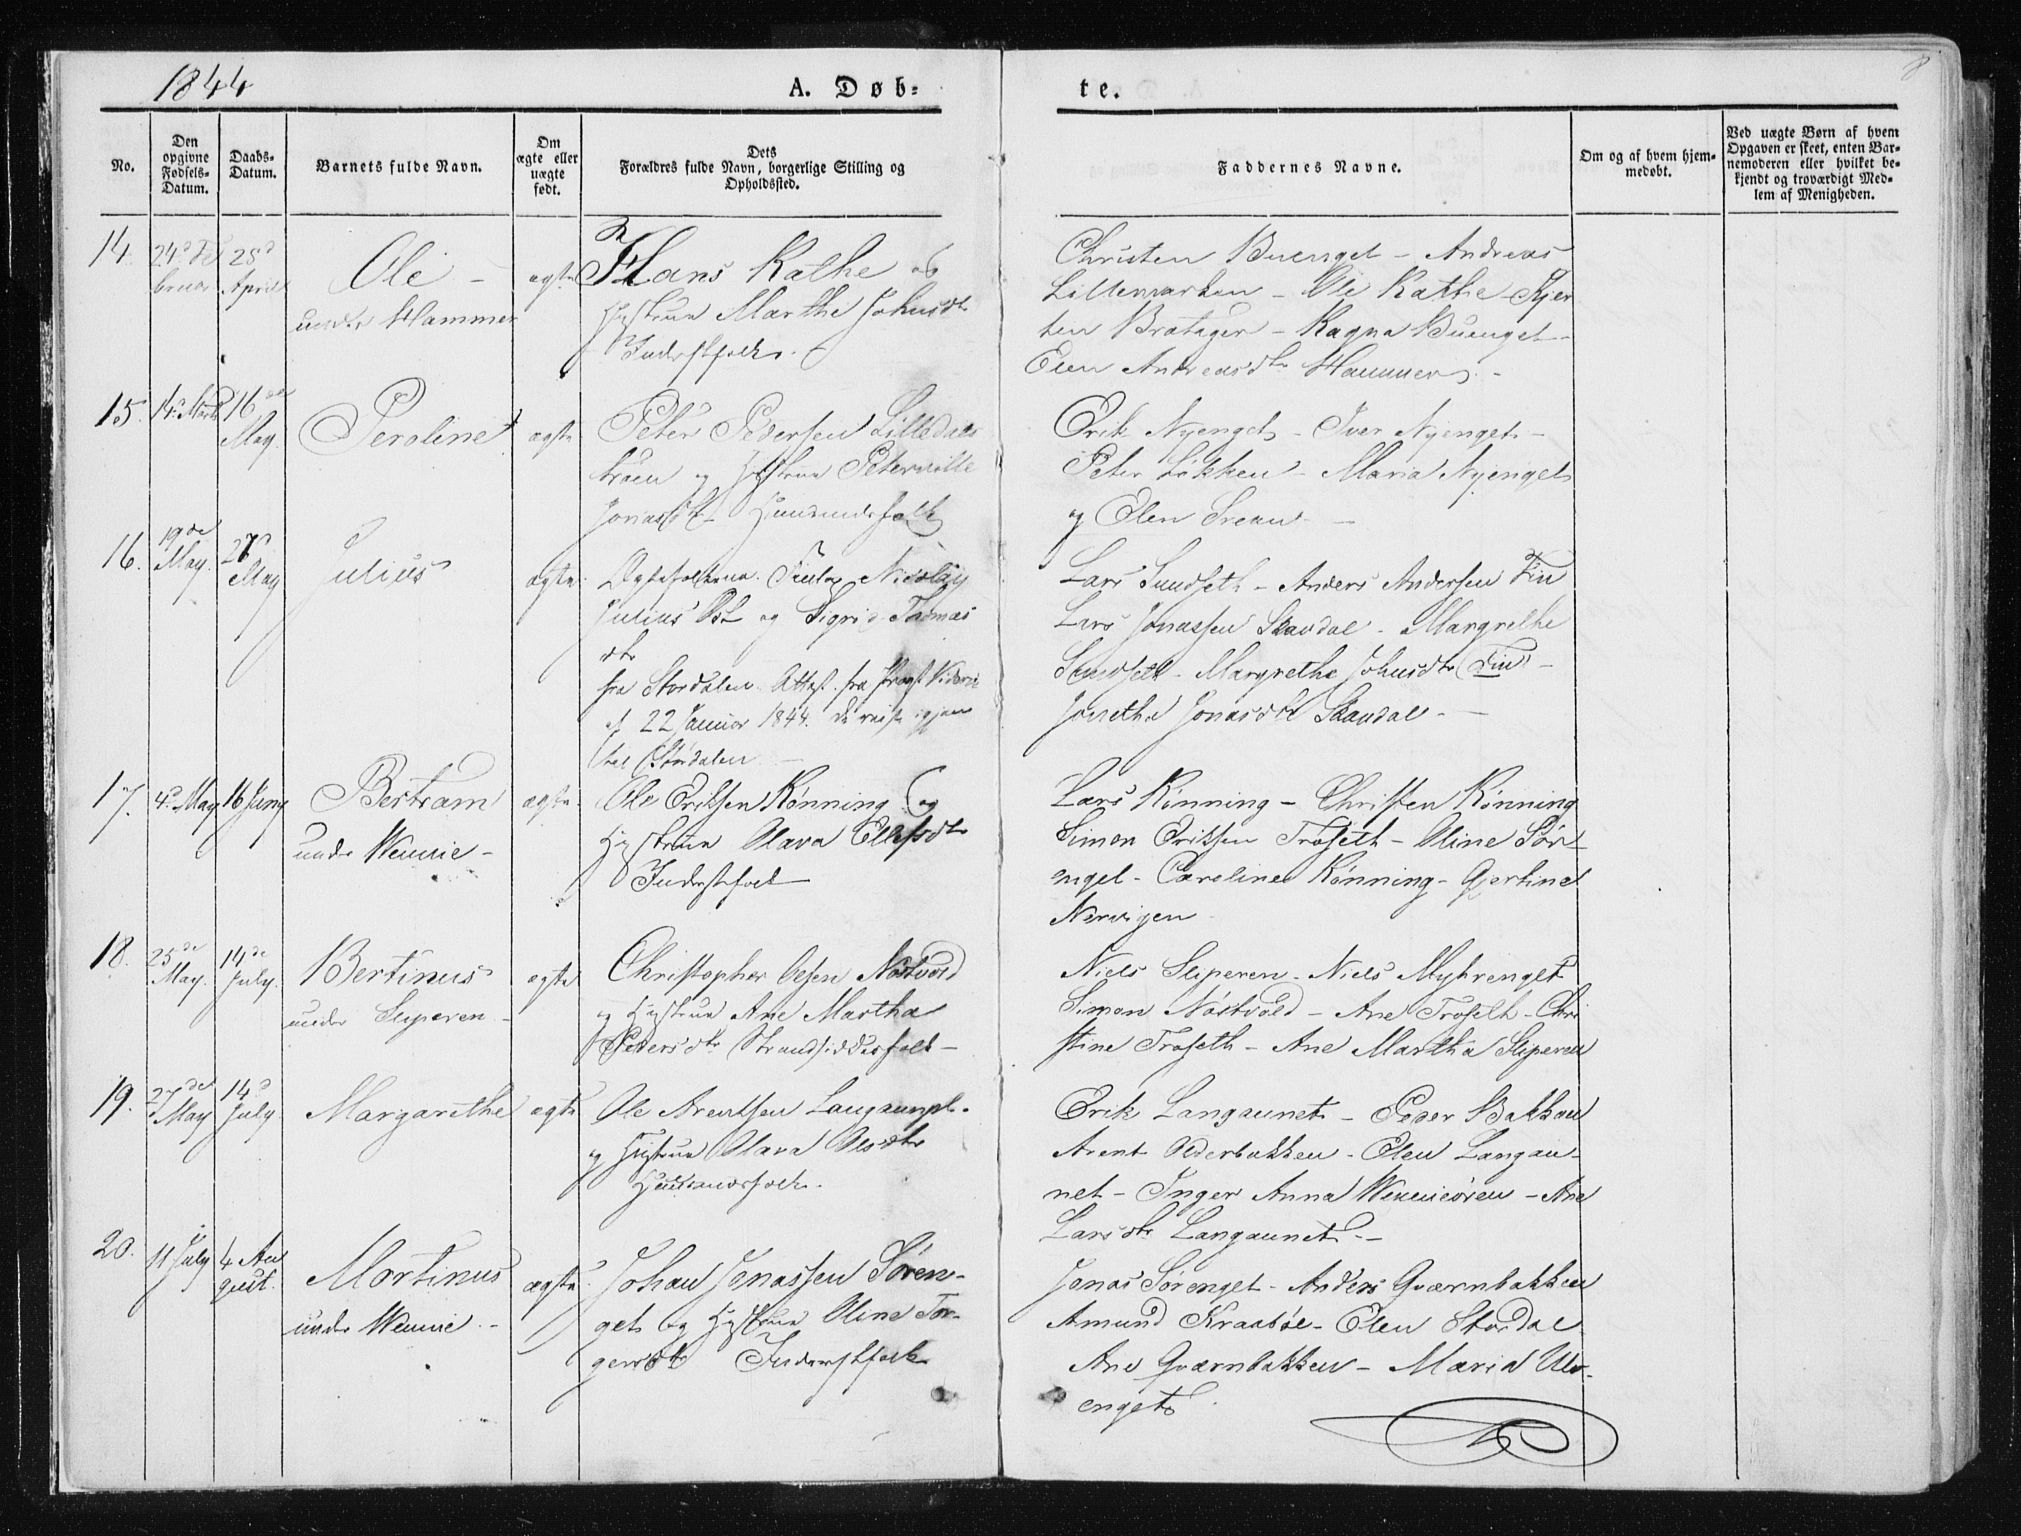 1844
A. Døb-
te.
8
No.
Den opgivne Fødsels-Datum.
Daabs-Datum.
Barnets fulde Navn.
Om ægte eller uægte født.
Dets
Forældres fulde Navn, borgerlige Stilling og
Opholdssted.
Faddernes Navne.
Om og af hvem hjem-
medøbt.
Ved uægte Børn af hvem
Opgaven er skeet, enten Bar-
nemoderen eller hvilket be-
kjendt og troværdigt Med-
lem af Menigheden.
14.
24d Fe
bruar
28d
April
Ole -
under Hammer
ægte
Hans Kathe og
Hustrue Marthe Johnsdtr
Inderstfolk.
Christen Buenget - Andreas
Lillemarken - Ole Kathe -
ten Bratager - Ragna Buenget -
Elen Andreasdtr Hammer -
15.
14d Marts
16de
May.
Peroline
ægte
Peter Pedersen Lilledals
bråen og Hustrue Peternille
Jonasdtr Huusmandsfolk
Erik Nyenget - Iver Nyenget -
Peter Løkken - Maria Nyenget
og Elen
16.
19de
May.
27d
May
Julius
ægte
Ægtefolkene Nicolay
Julius og Sigrid Thomas
dtr
fra Stordalen. Attest. fra Provst
af 22 Januar 1844. De reiste igjen
til Stordalen -
Lars Sundseth - Anders Andersen Fin
Lars Jonassen Skavdal - Margrethe
Sundseth - Margrethe Johnsdtr Fin -
Jonetha Jonasdtr Skavdal -
17.
4d May
16 Juny
Bertram
under Wennie -
ægte
Ole Eriksen Rønning og
Hustrue Olava Ellefsdtr
Inderstfolk
Lars Rønning - Christen Rønning
Simon Eriksen Troseth - Oline Sør
enget - Caroline Rønning - Gjertine
Nervigen
18.
25de
May.
14de
July.
Bertinus
under Sliperen -
ægte
Christopher Olsen Nøstvold
og Hustrue Ane Martha
Pedersdtr Strandsidderfolk -
Niels Sliperen - Niels Myhrenget
Simon Nøstvold - Ane Troseth - Chri
stine Troseth - Ane Martha Sliperen
19.
27de
May
14d
July.
Margarethe
ægte
Ole Arentsen Langaunet.
og Hustrue Olava Olsdtr
Huusmandsfolk.
Erik Langaunet - Peder Bakken
Arent Olderbakken - Elen Langau-
net - Inger Anna Wennieøren - Ane
Larsdtr Langaunet -
20.
11 July
4 Au
gust.
Mortinus
under Wennie -
ægte
Johan Jonassen Søren-
get og Hustrue Oline Tor-
gersdtr Inderstfolk
Jonas Sørenget - Anders Qværnbakken
Amund Kraabøl - Elen Stordal
Ane Qværnbakken - Maria Ulv-
enget